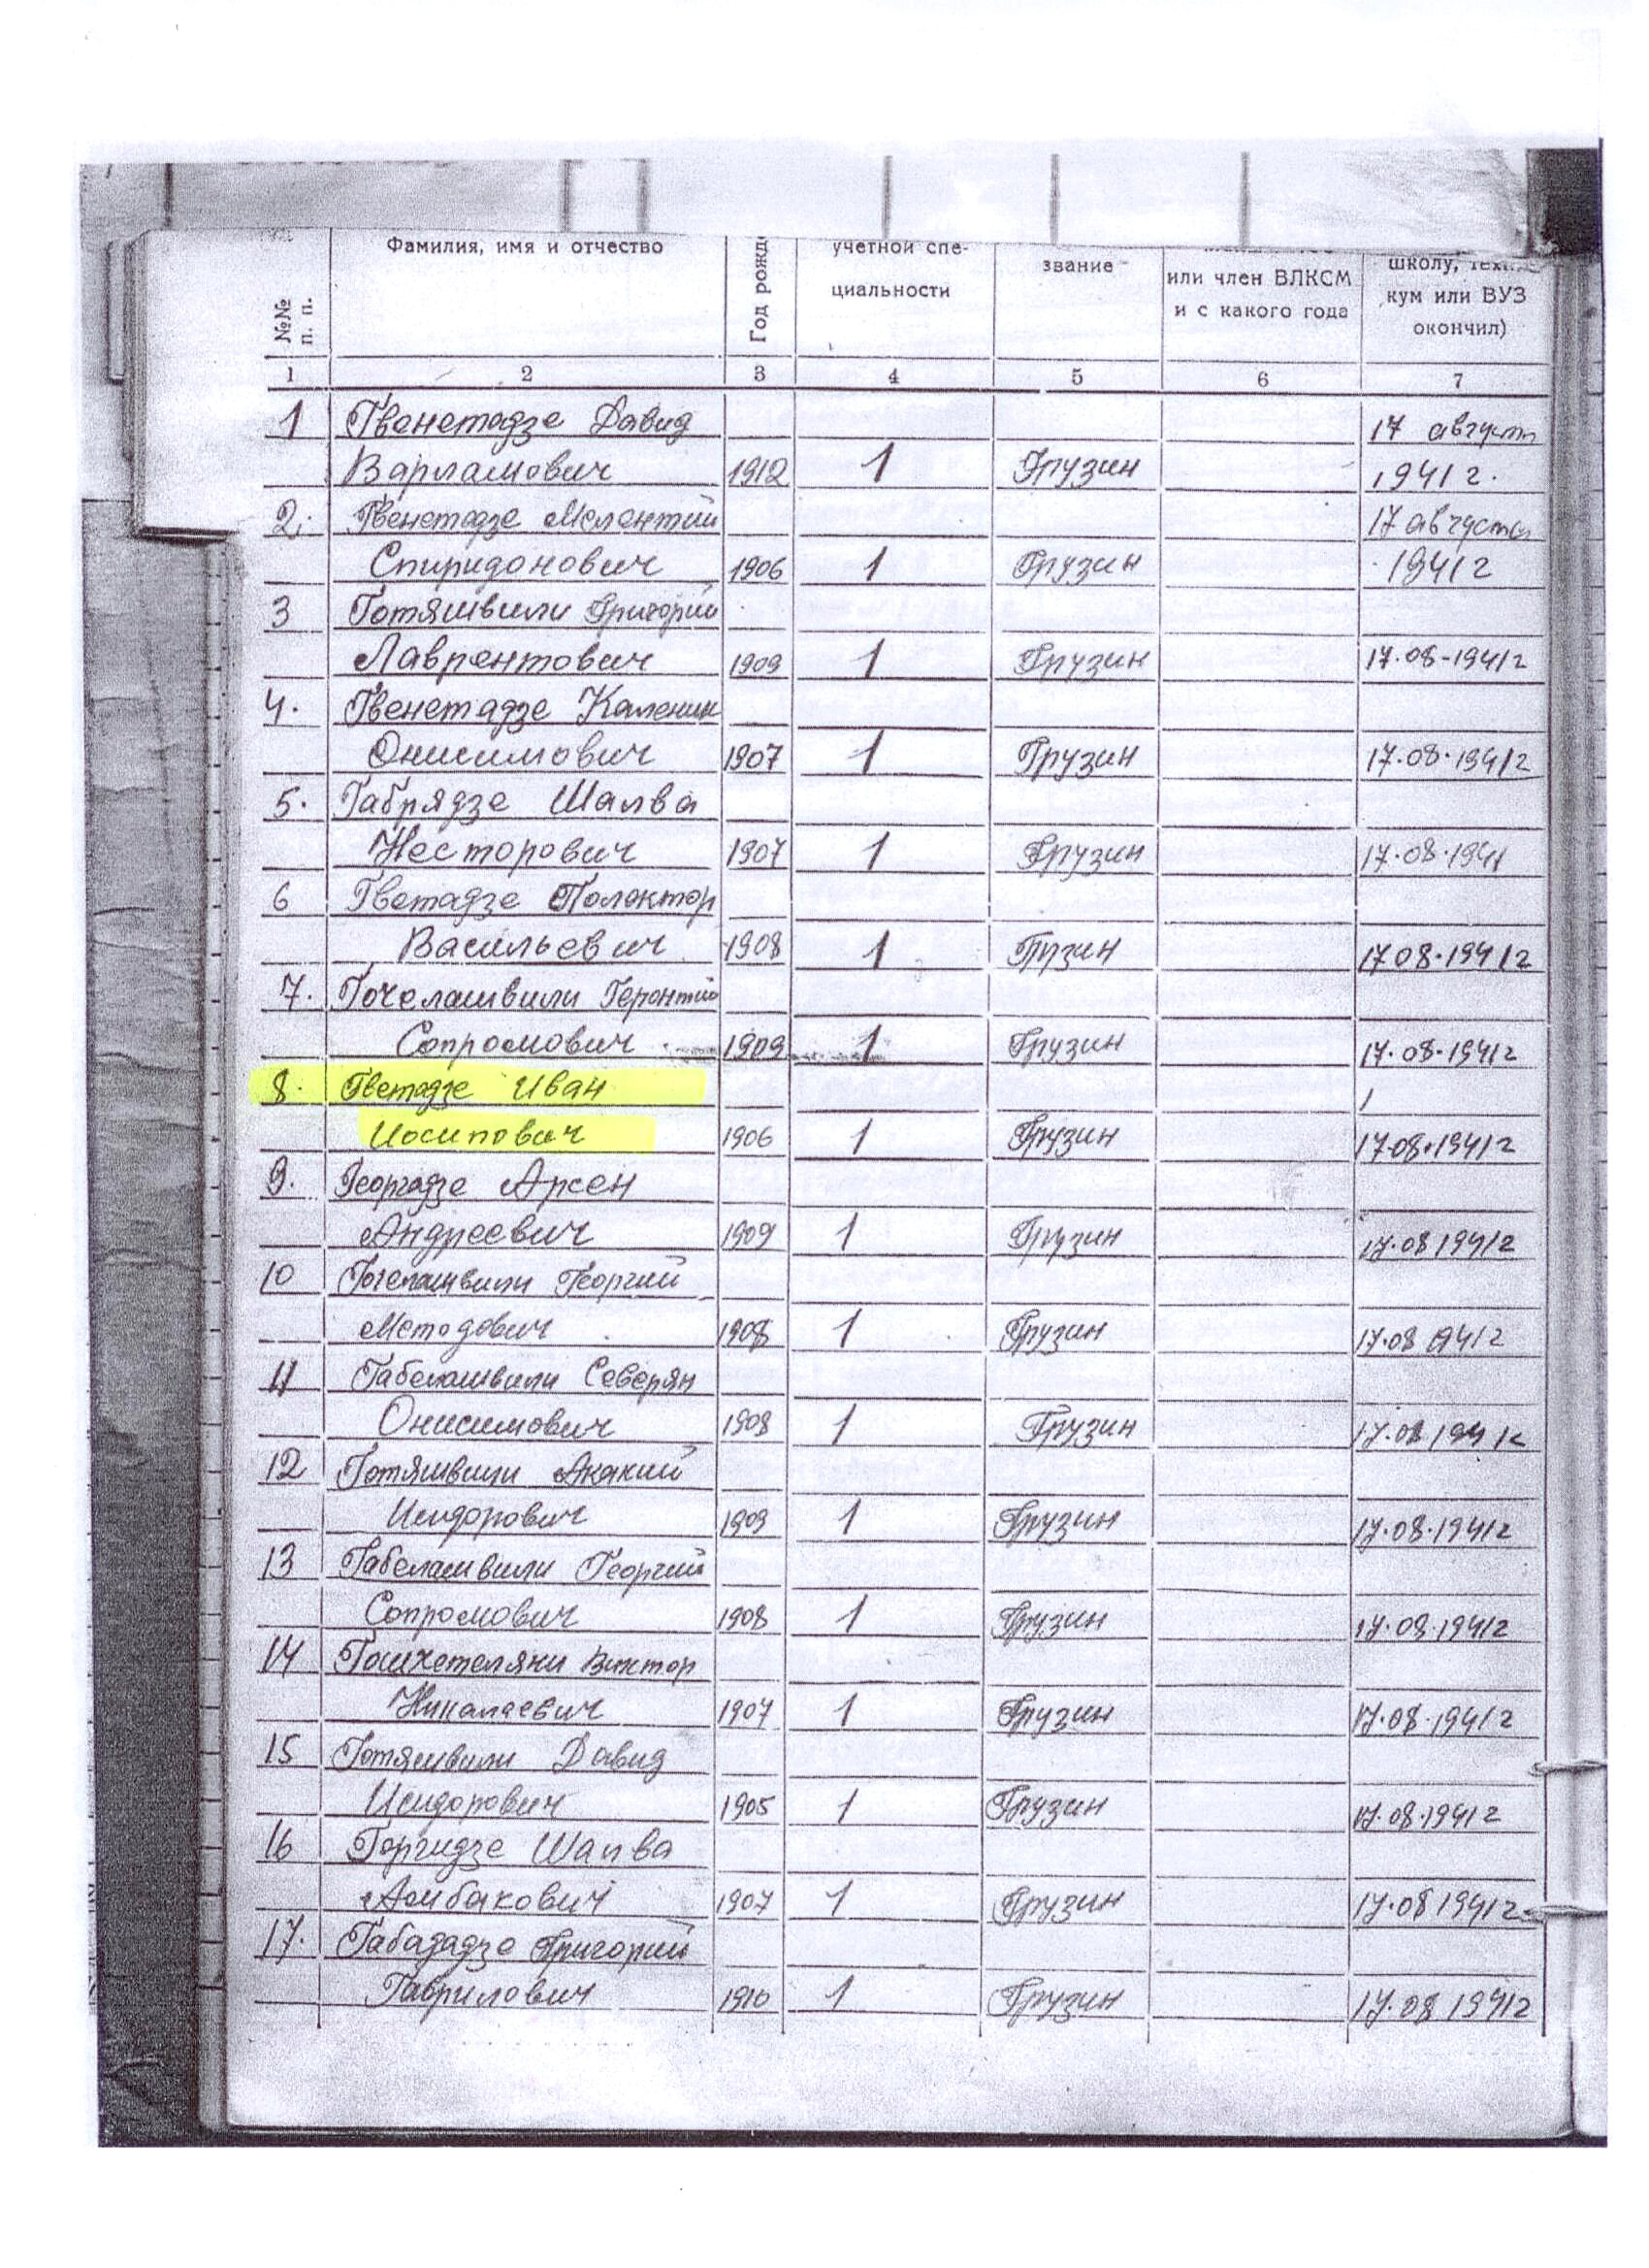 №№ п. п.
Фамилия, имя и отчество
Год рожд
учетной спе-
циальности
звание
или член ВЛКСМ
и с какого года
школу, техни
кум или ВУЗ
окончил)
1 2 3 4 5 6 7
1 Гвенетадзе Давид 17 августа
Варламович 1912 1 Грузин 1941 г.
2. Гвенетадзе Мелентий 17 августа
Спиридонович 1906 1 Грузин 1941 г
3 Готяшвили Григорий
Лаврентович 1909 1 Грузин 17.08-1941 г
4. Гвенетадзе Каленик
Онисимович 1907 1 Грузин 17.08.1941 г
5. Габрядзе Шалва
Несторович 1907 1 Грузин 17.08.1941
6 Гветадзе Полектор
Васильевич 1908 1 Грузин 17 08.1941 г
7. Гочелашвили Геронтий
Сопромович 1909 1 Грузин 17.08.1941 г
8. Гветадзе Иван
Иосипович 1906 1 Грузин 17.08.1941 г
9. Георгадзе Арсен
Андреевич 1909 1 Грузин 17.08 1941 г
10 Гочелашвили Георгий
Методович 1908 1 Грузин 17.08 1941 г
11 Габелашвили Северян
Онисимович 1908 1 Грузин 17.08 1941 г
12 Готяшвили Акакий
Исидорович 1909 1 Грузин 17.08.1941 г
13 Габелашвили Георгий
Сопромович 1908 1 Грузин 17.08.1941 г
14 Гошхетеляни Виктор
Николаевич 1907 1 Грузин 17.08.1941 г
15 Готяшвили Давид
Исидорович 1905 1 Грузин 17.08.1941 г
16 Горгидзе Шалва
Амбакович 1907 1 Грузин 17.08 1941 г
17. Габададзе Григорий
Гаврилович 1910 1 Грузин 17.08 1941 г